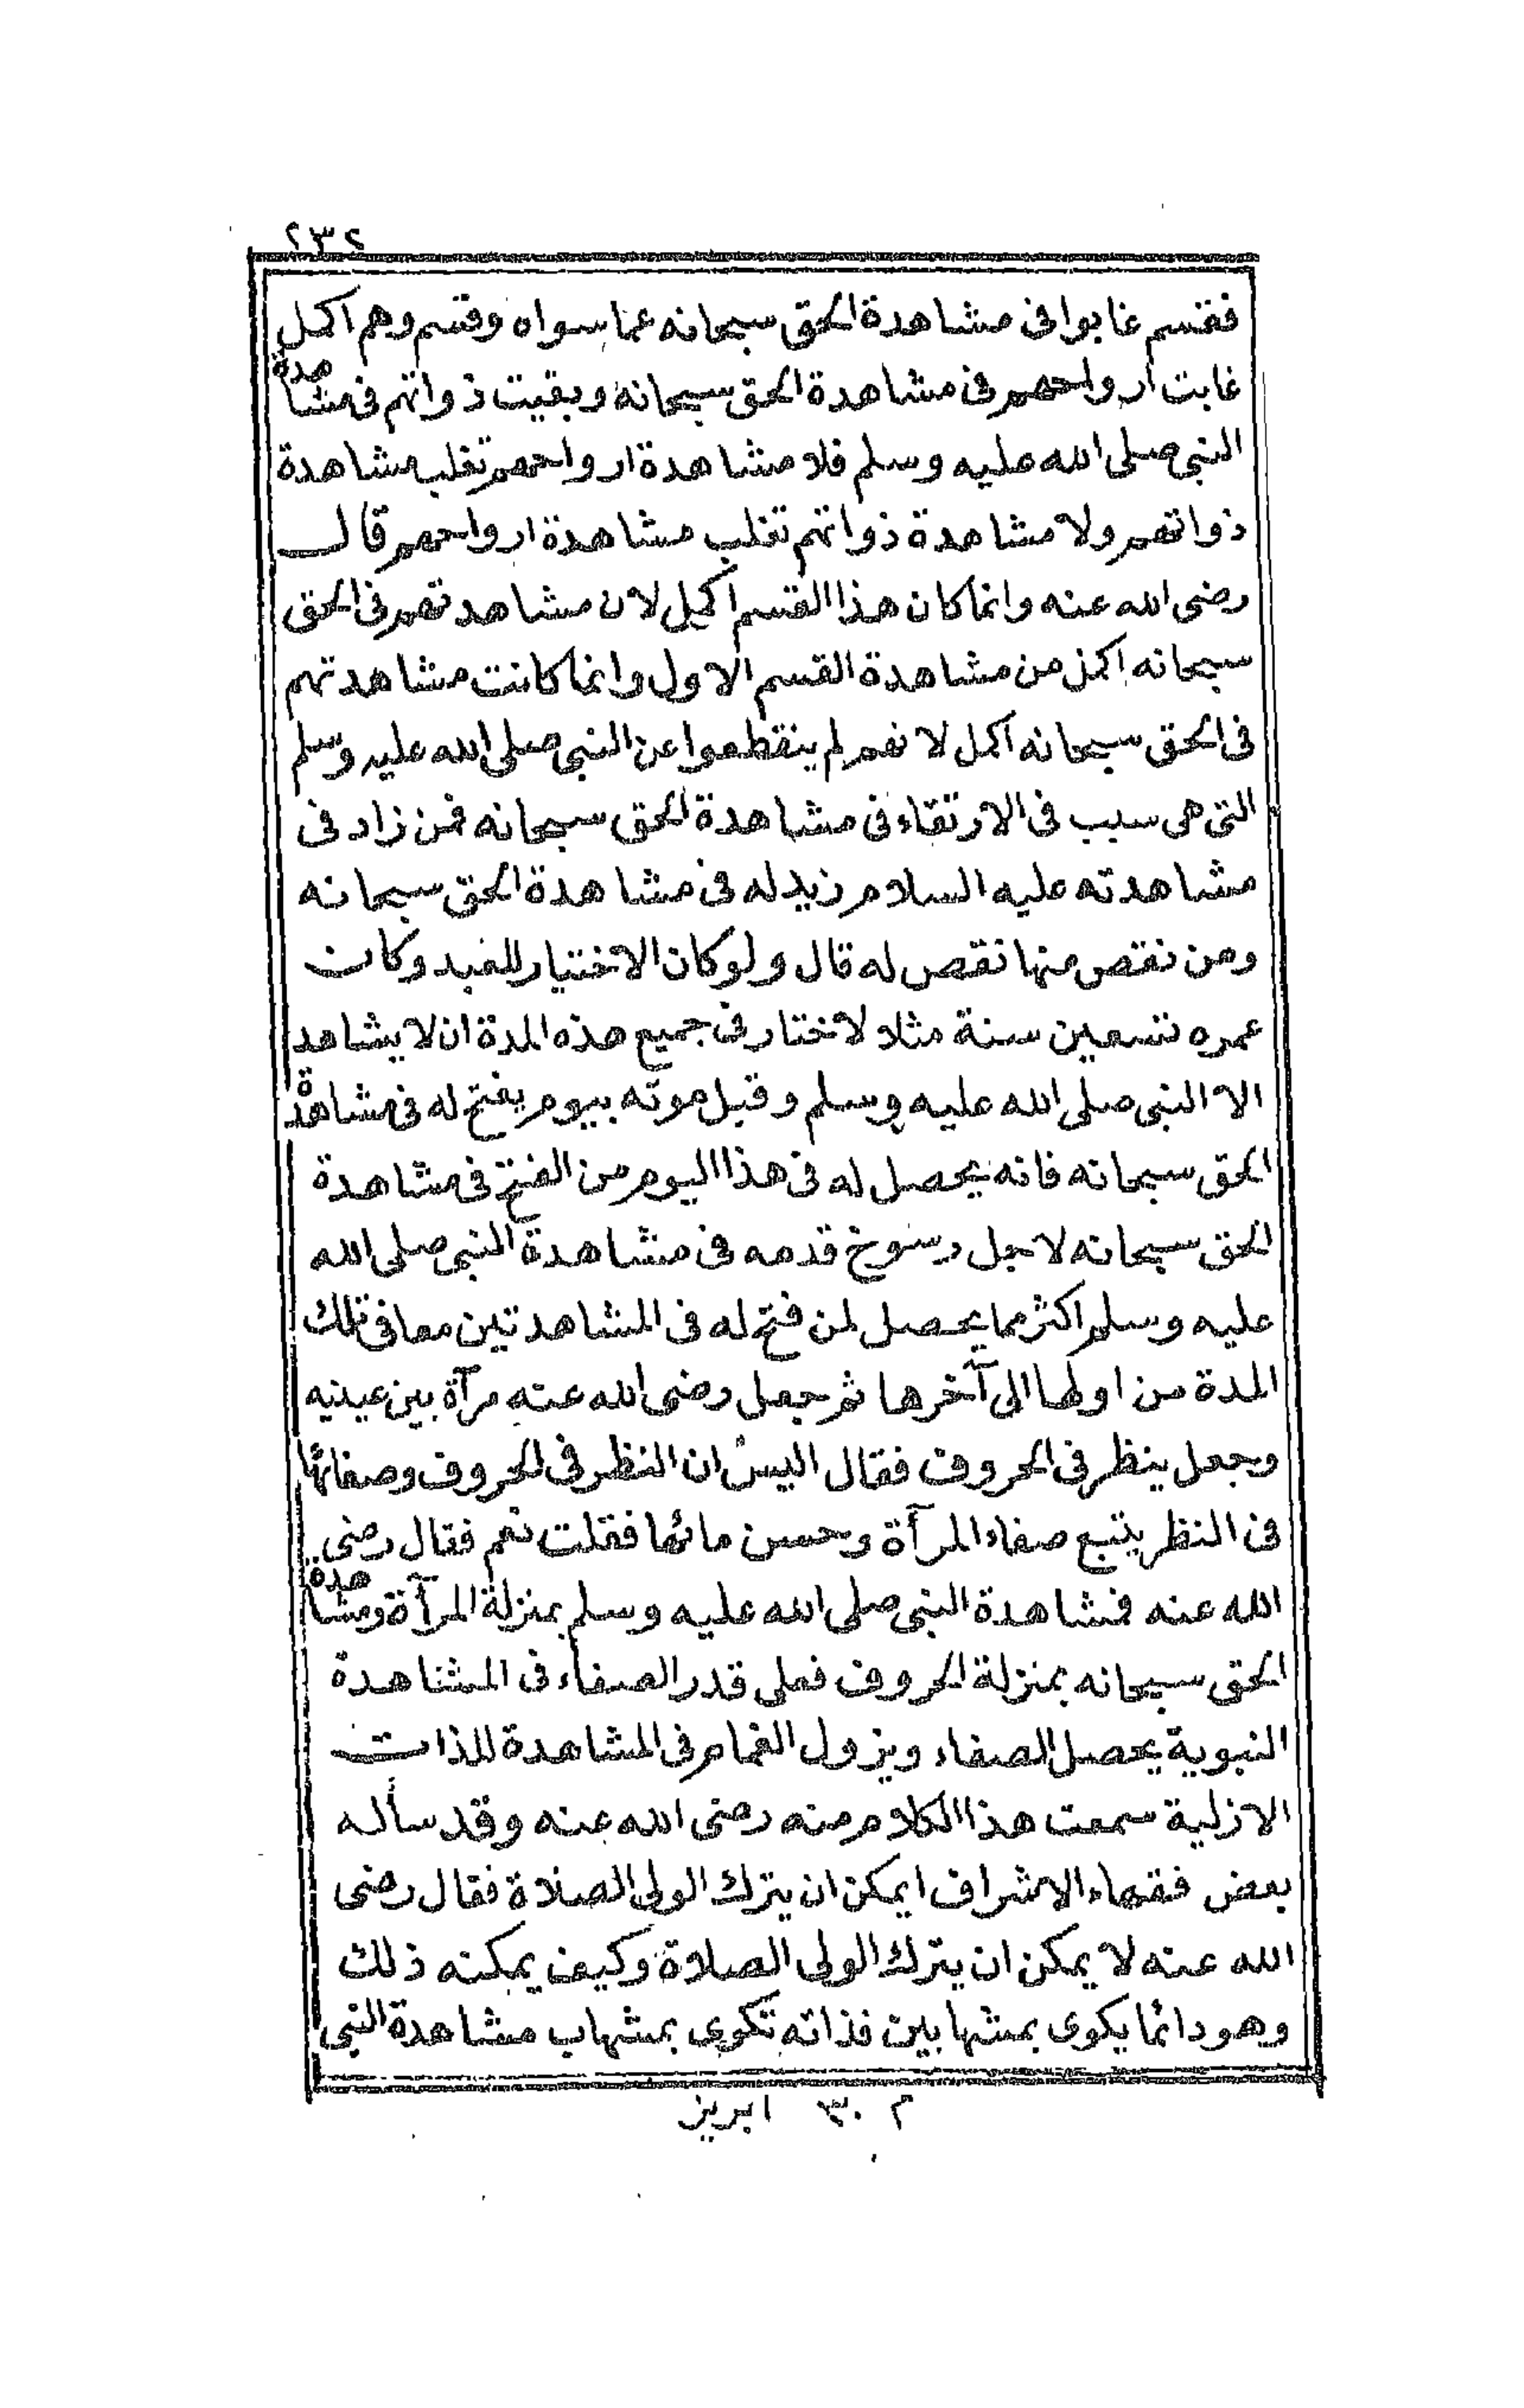 ٢٣٢
فقسم غابوا فى مشاهدة الحق سبحانه عما سواه وقسم وهم اكمل
غابت ارواحهم فى مشاهدة الحق سبحانه وبقيت ذواتهم فى مشاهدة
النبى صلى الله عليه وسلم فلا مشاهدة ارواحهم تغلب مشاهدة
ذواتهم ولا مشاهدة ذواتهم تغلب مشاهدة ارواحهم قال
رضى الله عنه وانما كان هذا القسم اكمل لان مشاهدتهم فى الحق
سبحانه اكمل من مشاهدة القسم الاول وانما كانت مشاهدتهم
فى الحق سبحانه اكمل لانهم لم ينقطعوا عن النبى صلى الله عليه وسلم
التى هى سبب فى الارتقاء فى مشاهدة الحق سبحانه فمن زاد فى
مشاهدته عليه السلام زيد له فى مشاهدة الحق سبحانه
ومن نقص منها نقص له قال ولو كان الاختيار للعبد وكان
عمره تسعين سنة مثلا لاختار فى جميع هذه المدة ان لا يشاهد
الا النبى صلى الله عليه وسلم وقبل موته بيوم يفتح له فى مشاهدة
الحق سبحانه فانه يحصل له فى هذا اليوم من الفتح فى مشاهدة
الحق سبحانه لاجل رسوخ قدمه فى مشاهدة النبى صلى الله
عليه وسلم اكثر مما يحصل لمن فتح له فى المشاهدتين معا فى تلك
المدة من اولها الى آخرها ثم جعل رضى الله عنه مرآة بين عينيه
وجعل ينظر فى الحروف فقال اليس ان النظر فى الحروف وصفائها
فى النظر يتبع صفاء المرآة وحسن مائها فقلت نعم فقال رضى
الله عنه فمشاهدة النبى صلى الله عليه وسلم بمنزلة المرآة ومشاهدة
الحق سبحانه بمنزلة الحروف فعلى قدر الصفاء فى المشاهدة
النبوية يحصل الصفاء ويزول الغمام فى المشاهدة للذات
الازلية سمعت هذا الكلام منه رضى الله عنه وقد سأله
بعض فقهاء الاشراف ايمكن ان يترك الولى الصلاة فقال رضى
الله عنه لا يمكن ان يترك الولى الصلاة وكيف يمكنه ذلك
وهو دائما يكوى بمشهابين فذاته تكوى بمشهاب مشاهدة النبى
م ٣٠ ابريز